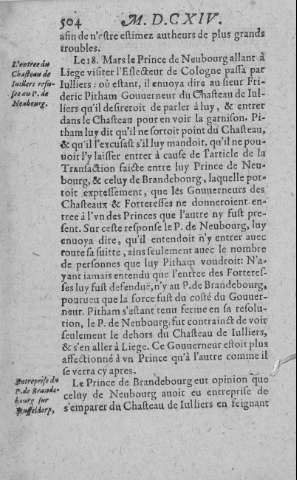 504 M. D. C XIV.
afin de n'estre estimez autheurs de plus grands
troubles.
L'entree du
Chasteau de
Iulliers refu-
see au P. de
Neubourg.
Le 18. Mars le Prince de Neubourg allant à
Liege visiter l'Eslecteur de Cologne passa par
Iulliers: où estant, il enuoya dire au sieur Fri-
deric Pitham Gouuerneur du Chasteau de Iul-
liers qu'il desiretoit de parler à luy, & entrer
dans le Chasteau pour en voir la garnison. Pi-
tham luy dit qu'il ne sortoit point du Chasteau,
& qu'il l'excusast s'il luy mandoit, qu'il ne pou-
uoit l'y laisser entrer à cause de l'article de la
Transaction faicte entre luy Prince de Neu-
bourg, & celuy de Brandebourg, laquelle por-
toit expressement, que les Gouuerneurs des
Chasteaux & Forteresses ne donneroient en-
tree à l'vn des Princes que l'autre ny fust pre-
sent. Sur ceste response le P. de Neubourg, luy
enuoya dire, qu'il entendoit n'y entrer auec
toute sa suitte, ains seulement auec le nombre
de personnes que luy Pitham voudroit: N'a-
yant iamais entendu que l'entree des Forteres-
ses luy fust defenduë, n'y au P. de Brandebourg,
pourueu que la force fust du costé du Gouuer-
neur. Pitham s'estant tenu ferme en sa resolu-
tion, le P. de Neubourg fut contrainct de voir
seulement le dehors du Chasteau de Iulliers,
& s'en aller à Liege. Ce Gouuerneur estoit plus
affectionné à vn Prince qu'à l'autre comme il
se verra cy apres.
Entreprise du
P. de Brande-
bourg sur
Dusseldorp,
Le Prince de Brandebourg eut opinion que
celuy de Neubourg auoit eu entreprise de
s'emparer du Chasteau de Iulliers en feignant